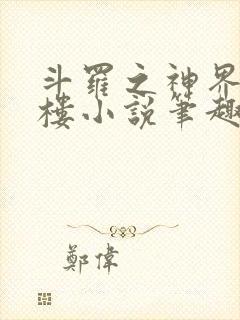 斗羅之神界
樓小說筆趣
鄭偉